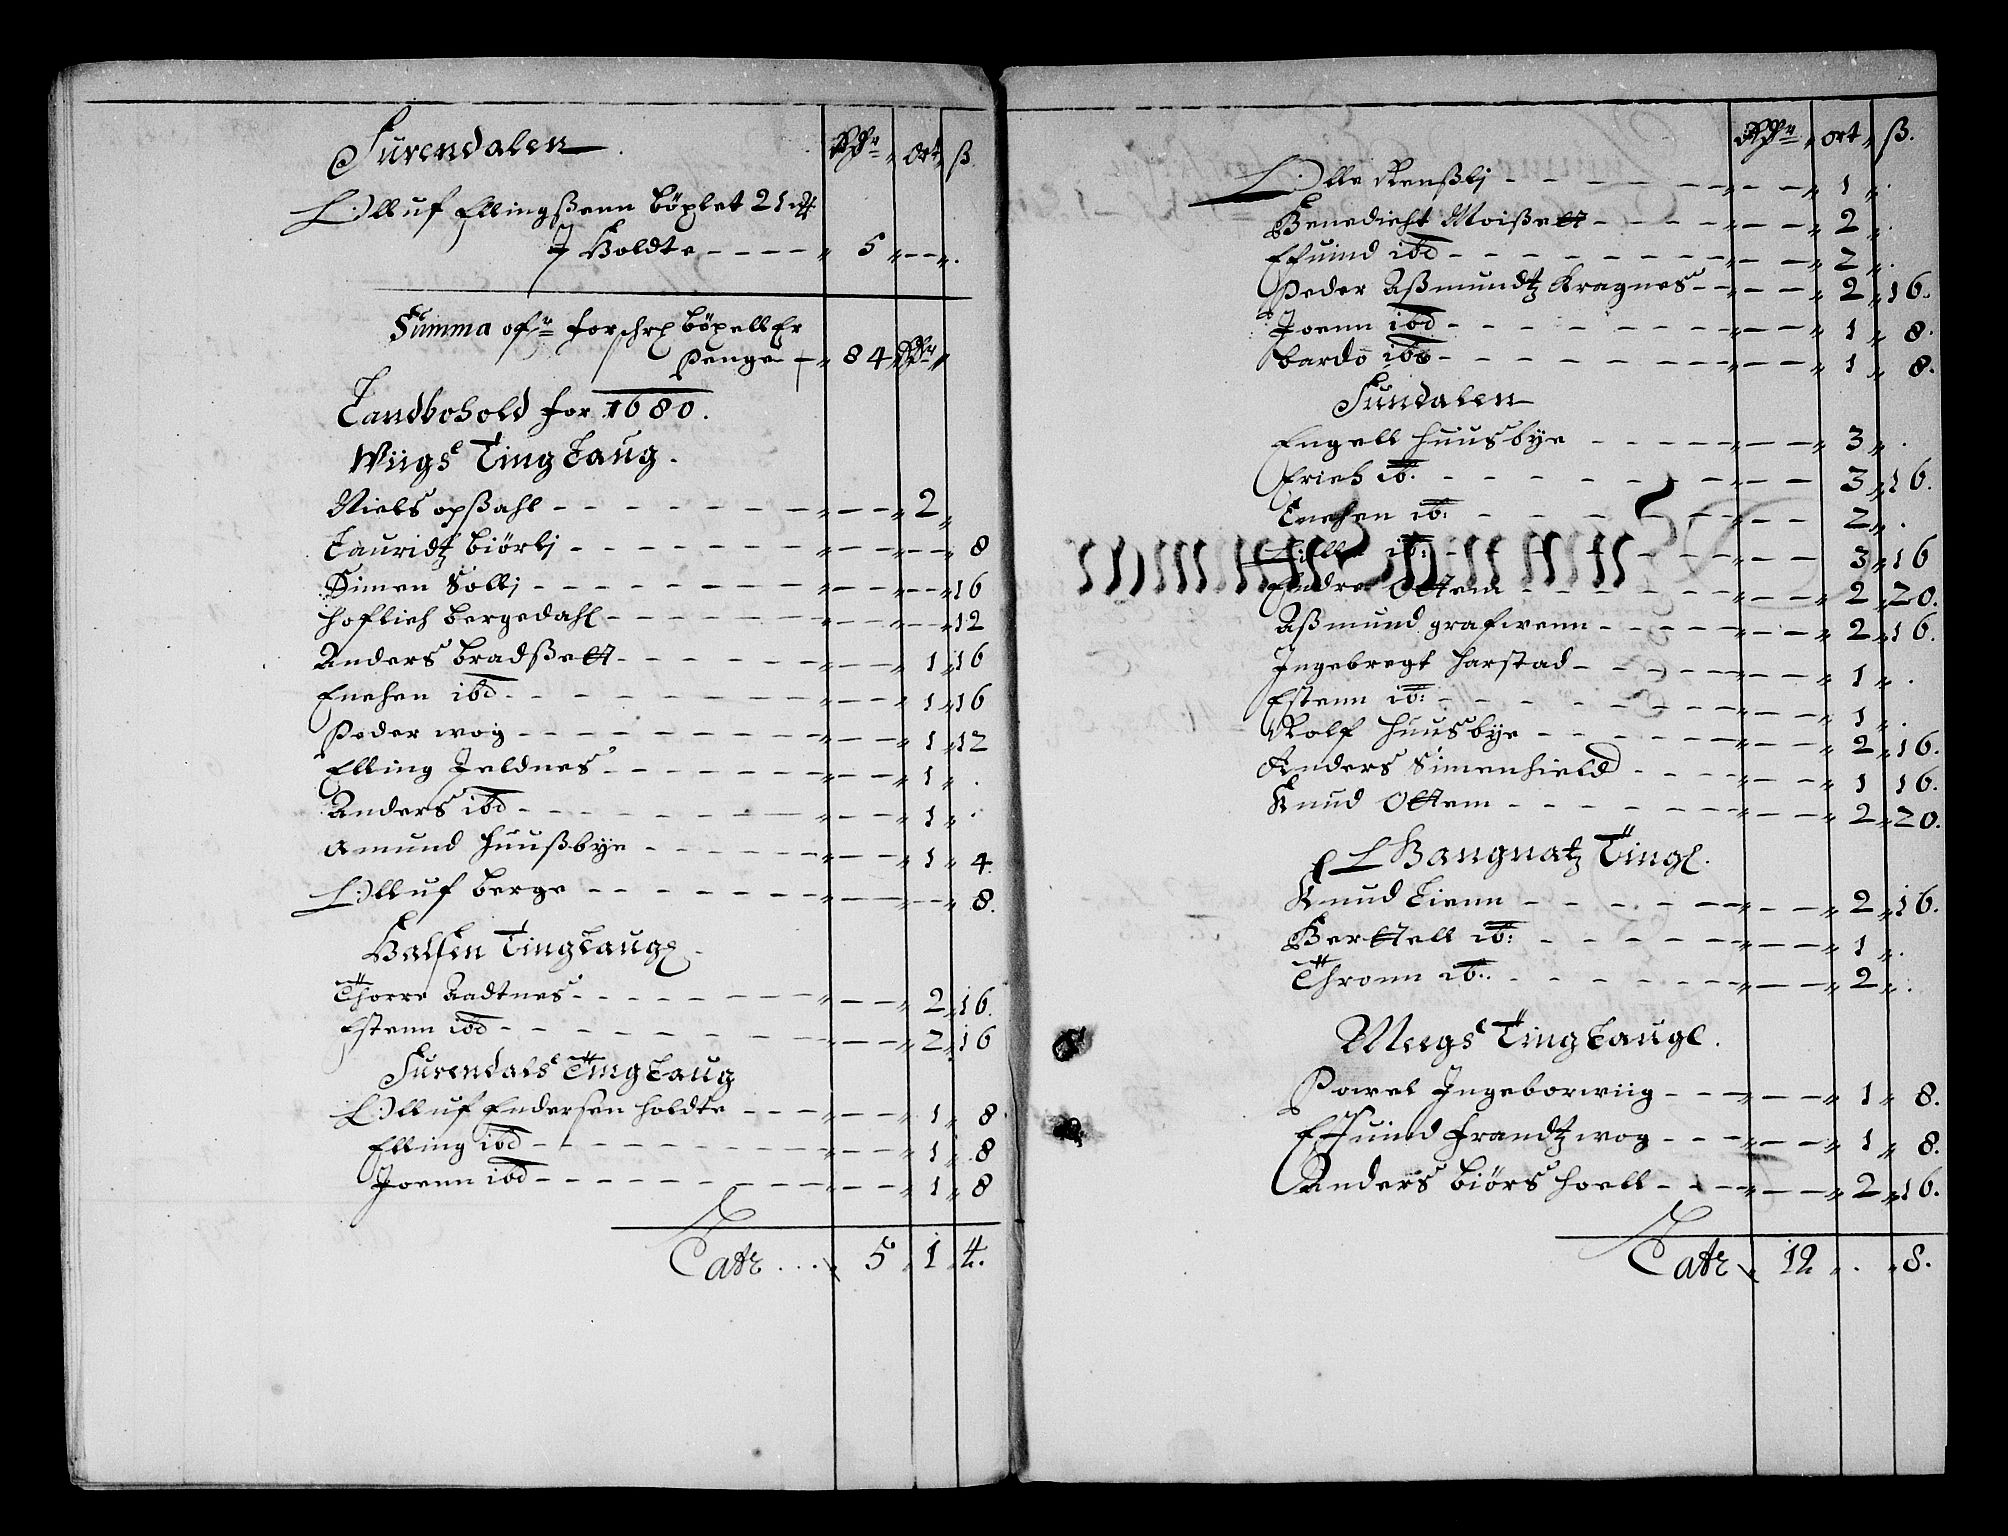 Surendalen
Rdr ort ß
Olluf Ellingßenn böxlet 21
J Holdte - - - - 5 - - .
Summa ofr forschr böxell Er
Penge - 84 Rdr
Landbohold for 1680.
Wiigs Ting Laug.
Niels opßahl - - - - 2
Lauridtz Biörlj - - - - 8
Simen Sollj - - - - 16
hoflich bergedahl - - - - 12
Anders bradßett - - - - 1 16
Enchen ibd - - - - 1 16
Peder wog - - - - 1 12
Elling Jeldnes - - - - 1 .
Anders ibd - - - - 1 .
Amund Huußbye - - - - 1 4.
Olluf berge - - - - 8.
Halsen Ting Laug
Thorre Aadtnes - - - - 2 16.
Estenn ibd - - - - 2 16
Surendals Ting Laug
Olluf Endersen holdte - - - 1 8
Elling ibd - - - - 1 8
Joenn ibd - - - - 1 8
Latr . . . 5 1 4.
Rdr ort ß.
Olle Renßlj - - - - 1 .
Benedicht Moißett - - - - 2 .
Efuind ibd - - - - 2 .
Peder Aßmundtz Kragnes - - - 2 16.
Joenn ibd - - - - 1 8.
bardo ibd - - - - 1 8.
Sundalen
Engell Huusbye - - - - 3 .
Erich ib. - - - - 3 16.
Enchen ib: - - - - 2 .
Olle ib: - - - - 3 16
Endre Ottem - - - - 2 20.
Aßmund grafwenn - - - - 2 16.
Ingebregt Harstad - - - - 1 .
Estenn ib: - - - - 1 .
Rolf Huusbye - - - - 2 16.
Anders Simenhield - - - 1 16.
Knud Ottem - - - - 2 20.
Bangnatz Tingl.
Knud Lienn - - - - 2 16.
Berttell ib: - - - - 1 .
Thronn ib. - - - - 2 .
Meegs Ting Laugl.
Powel Ingeborwiig - - - 1 8.
Efuind Frandtz wog - - - 1 8.
Anders biörs hoell - - - 2 16.
Latr 12 . 8.